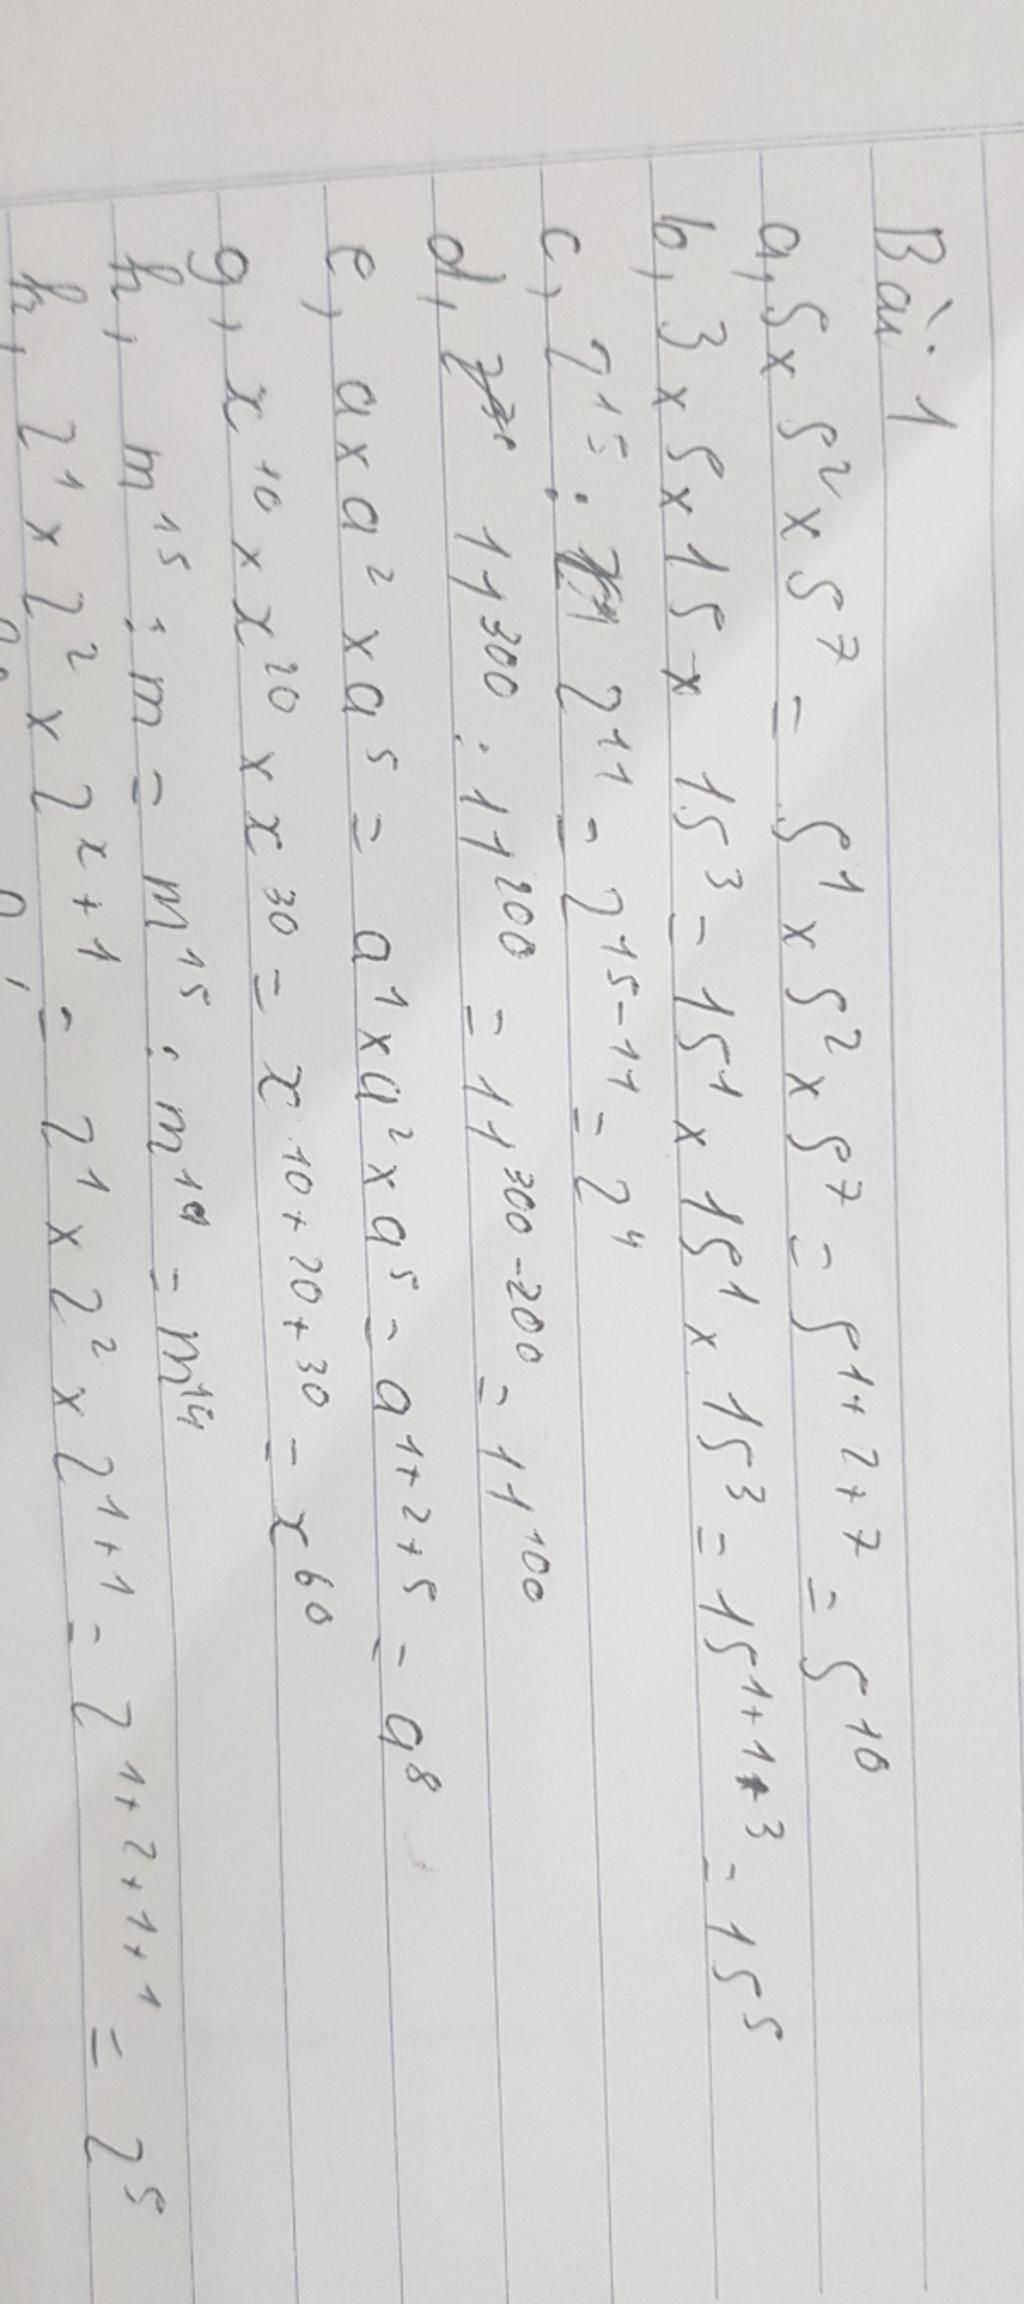 Bài 1
a, 5 x 5² x 5⁷ = 5¹ x 5² x 5⁷ = 5¹⁺²⁺⁷ = 5¹⁰
b, 3 x 5 x 15 x 15³ = 15¹ x 15¹ x 15³ = 15¹⁺¹⁺³ = 15⁵
c, 2¹⁵ : 2¹¹ = 2¹⁵⁻¹¹ = 2⁴
d, 11³⁰⁰ : 11²⁰⁰ = 11³⁰⁰⁻²⁰⁰ = 11¹⁰⁰
e, a x a² x a⁵ = a¹ x a² x a⁵ = a¹⁺²⁺⁵ = a⁸
g, x¹⁰ x x²⁰ x x³⁰ = x¹⁰⁺²⁰⁺³⁰ = x⁶⁰
h, m¹⁵ : m = m¹⁵ : m¹ = m¹⁴
k, 2¹ x 2² x 2ˣ⁺¹ = 2¹ x 2² x 2¹⁺¹ = 2¹⁺²⁺¹⁺¹ = 2⁵